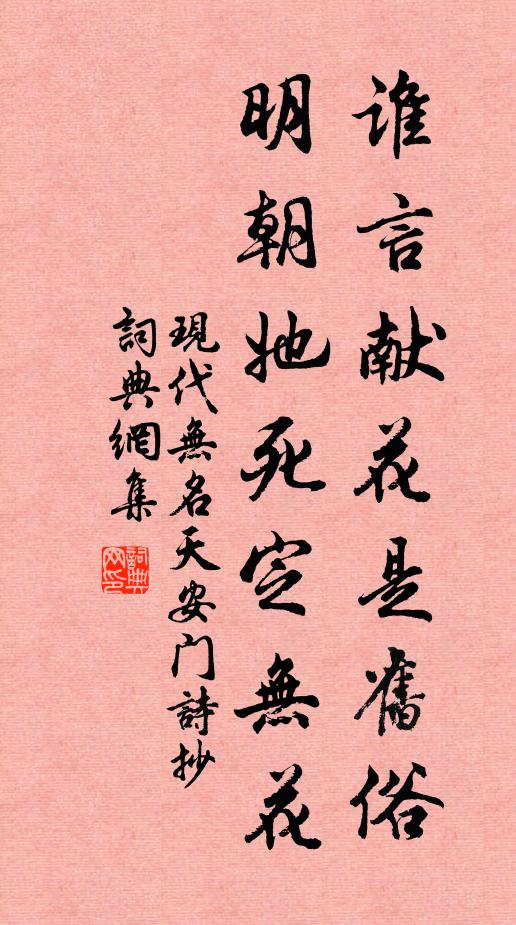 谁言献花是舊俗
明朝她死定無花
現代無名天安门詩抄
詞典網集
詞典网印